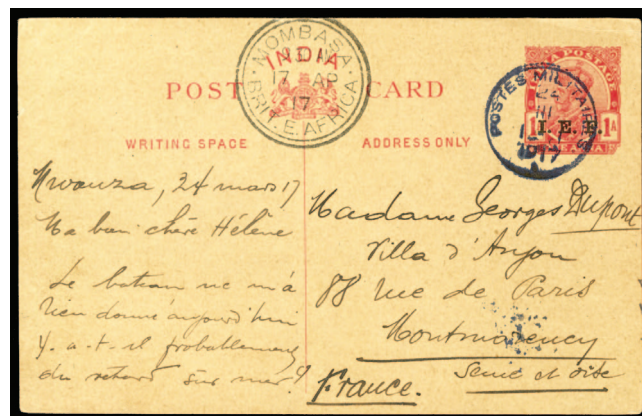 POST CARD
INDIA
MOMBASA
17 AP
17
BRIT. E. AFRICA
POSTAGE
1A 1A
I. E. F.
ONE ANNA
POSTES MILITAIRES
24
III
1917
WRITING SPACE
ADDRESS ONLY
Mwanza, 24 mars 17
Ma bien chère Hélène
Le bateau ne m'a
rien donné aujourd'hui
Y. a-t-il probablement
du retard sur mer?
Madame Georges Dupont
Villa d'Anjou
88 rue de Paris
Montmorency
Seine et Oise
France.